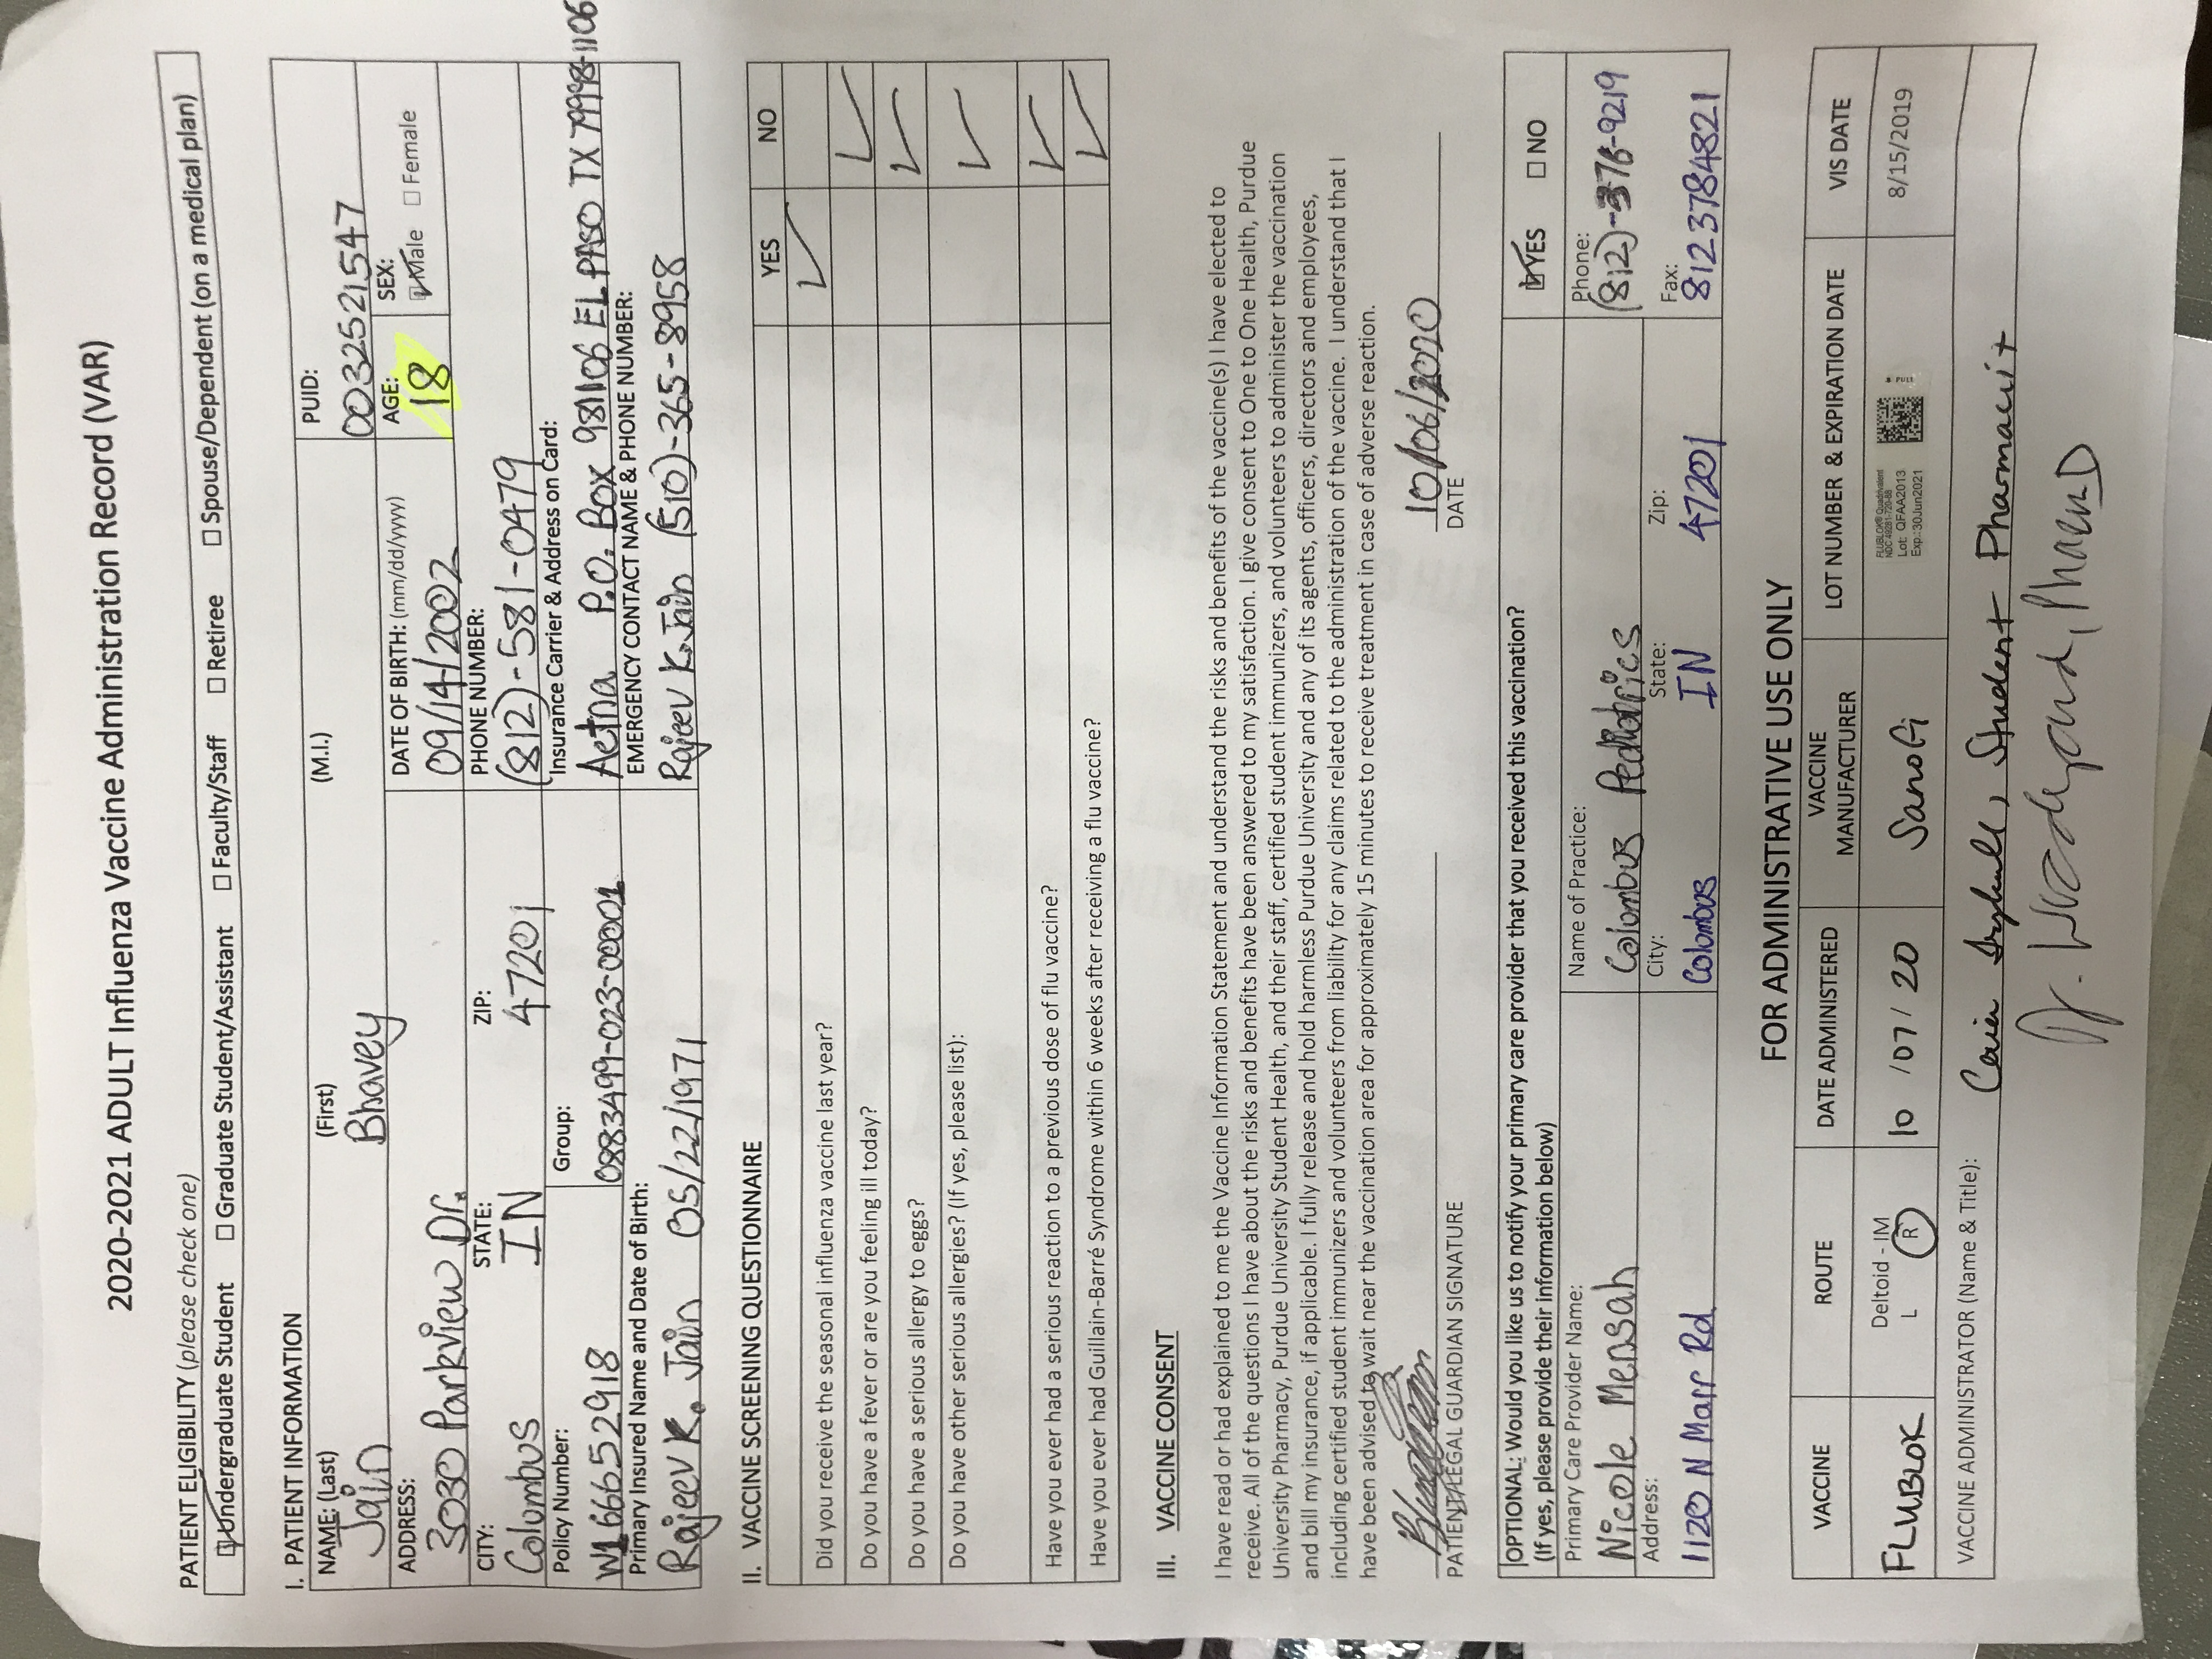 2020-2021 ADULT Influenza Vaccine Administration Record (VAR)
PATIENT ELIGIBILITY (please check one)
Undergraduate Student Graduate Student/Assistant Faculty/Staff Retiree Spouse/Dependent (on a medical plan)
I. PATIENT INFORMATION
NAME: (Last) (First) (M.I.) PUID:
Jain Bhavey 0032521547
ADDRESS: DATE OF BIRTH: (mm/dd/yyyy) AGE: SEX:
3030 Parkview Dr. 09/14/2002 18 Male Female
CITY: STATE: ZIP: PHONE NUMBER:
Columbus IN 47201 (812)-581-0479
Policy Number: Group: Insurance Carrier & Address on Card:
W166652918 0883499-023-00001 Aetna P.O. Box 981106 EL PASO TX 79998-1106
Primary Insured Name and Date of Birth: EMERGENCY CONTACT NAME & PHONE NUMBER:
Rajeev K. Jain 05/22/1971 Rajeev K. Jain (510)-365-8958
II. VACCINE SCREENING QUESTIONNAIRE
YES NO
Did you receive the seasonal influenza vaccine last year?
Do you have a fever or are you feeling ill today?
Do you have a serious allergy to eggs?
Do you have other serious allergies? (If yes, please list):
Have you ever had a serious reaction to a previous dose of flu vaccine?
Have you ever had Guillain-Barré Syndrome within 6 weeks after receiving a flu vaccine?
III. VACCINE CONSENT
I have read or had explained to me the Vaccine Information Statement and understand the risks and benefits of the vaccine(s) I have elected to
receive. All of the questions I have about the risks and benefits have been answered to my satisfaction. I give consent to One to One Health, Purdue
University Pharmacy, Purdue University Student Health, and their staff, certified student immunizers, and volunteers to administer the vaccination
and bill my insurance, if applicable. I fully release and hold harmless Purdue University and any of its agents, officers, directors and employees,
including certified student immunizers and volunteers from liability for any claims related to the administration of the vaccine. I understand that I
have been advised to wait near the vaccination area for approximately 15 minutes to receive treatment in case of adverse reaction.
10/06/2020
PATIENT/LEGAL GUARDIAN SIGNATURE DATE
OPTIONAL: Would you like us to notify your primary care provider that you received this vaccination? YES NO
(If yes, please provide their information below)
Primary Care Provider Name: Name of Practice: Phone:
Nicole Mensah Columbus Pediatrics (812)-376-9219
Address: City: State: Zip: Fax:
1120 N Marr Rd Columbus IN 47201 8123784821
FOR ADMINISTRATIVE USE ONLY
VACCINE ROUTE DATE ADMINISTERED VACCINE MANUFACTURER LOT NUMBER & EXPIRATION DATE VIS DATE
Deltoid - IM
FLUBLOK L R 10/07/20 Sanofi 8/15/2019
FLUBLOK® Quadrivalent
NDC 49281-720-88
Lot: QFAA2013
Exp.:30Jun2021
VACCINE ADMINISTRATOR (Name & Title): Student Pharmacist
PharmD